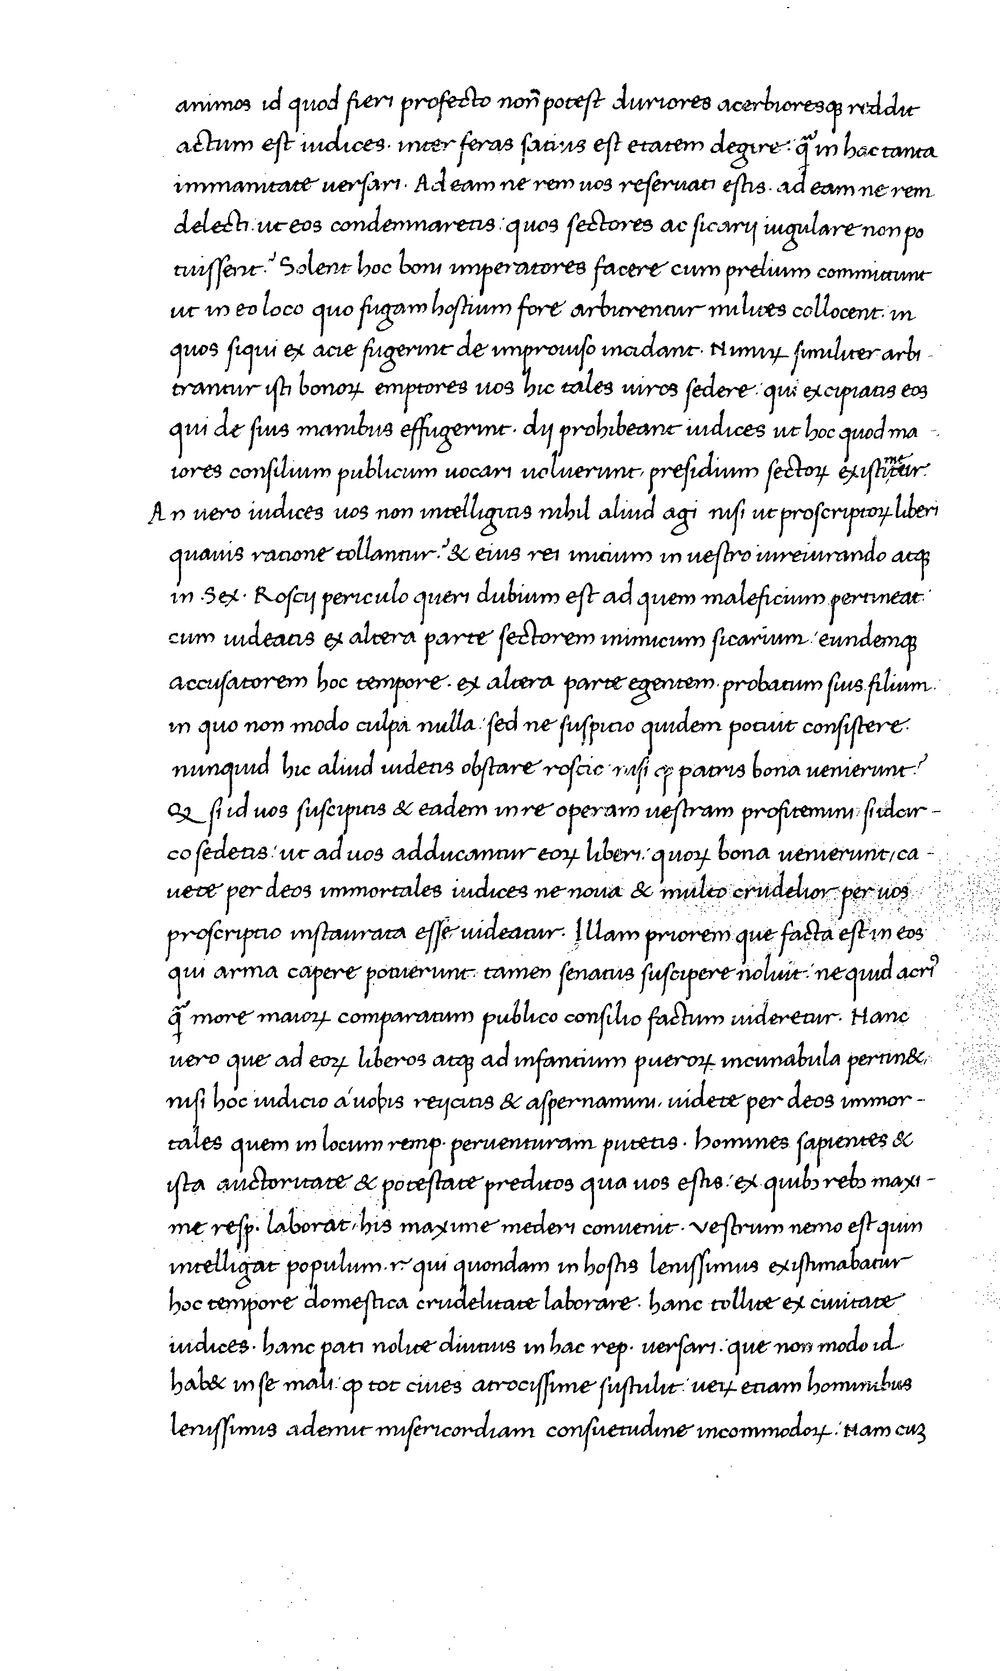 animos id quod fieri profecto non̄ potest duriores acerbioresqꝫ reddit
actum est iudices. inter feras satius est etatem degire: qᷓ in hac tanta
immanitate uersari. Ad eam ne rem uos reseruati estis. ad eam ne rem
delecti. ut eos condemnaretis: quos sectores ac sicarij iugulare non po
tuissent? Solent hoc boni imperatores facere cum prelium committunt
ut in eo loco quo fugam hostium fore arbitrentur milites collocent. in
quos siqui ex acie fugerint de improuiso incidant. Nimiꝝ similiter arbi-
trantur isti bonoꝝ emptores uos hic tales uiros sedere: qui excipiatis eos
qui de suis manibus effugerint. dij prohibeant iudices ut hoc quod ma-
iores consilium publicum uocari uoluerunt, presidium sectoꝝ existimetur.
An vero iudices uos non intelligitis nihil aliud agi nisi ut proscriptoꝝ liberi
quauis ratione tollantur? & eius rei initium in uestro iureiurando atqꝫ
in Sex. Roscij periculo queri dubium est ad quem maleficium pertineat:
cum uideatis ex altera parte sectorem inimicum sicarium: eundemqꝫ
accusatorem hoc tempore. ex altera parte egentem. probatum suis filium.
in quo non modo culpa nulla: sed ne suspicio quidem potuit consistere.
nunquid hic aliud uidetis obstare roscio nisi ꝙ patris bona uenierunt?
Qꝫ si id uos suscipitis & eadem in re operam uestram profitemini si idcir-
co sedetis: ut ad uos adducantur eoꝝ liberi: quoꝝ bona uenierunt, ca-
uete per deos immortales iudices ne noua & multo crudelior per uos
proscriptio instaurata esse uideatur. Illam priorem que facta est in eos
qui arma capere potuerunt: tamen senatus suscipere noluit: ne quid acri᾽
qᷓ more maioꝝ comparatum publico consilio factum uideretur. Hanc
vero que ad eoꝝ liberos atqꝫ ad infantium pueroꝝ incunabula pertin&,
nisi hoc iudicio á uobis reijcitis & aspernamini. uidete per deos immor-
tales quem in locum remp. peruenturam putetis. homines sapientes &
ista auctoritate & potestate preditos qua uos estis: ex quibꝫ rebꝫ maxi-
me resp. laborat, his maxime mederi conuenit. vestrum nemo est quin
intelligat populum. r. qui quondam in hostis lenissimus existimabatur
hoc tempore domestica crudelitate laborare. hanc tollite ex ciuitate
iudices. hanc pati nolite diutius in hac rep. uersari: que non modo id
hab& in se mali: ꝙ tot ciues atrocissime sustulit: ueꝝ etiam hominibus
lenissimis ademit misericordiam consuetudine incommodoꝝ: Nam cuꝫ